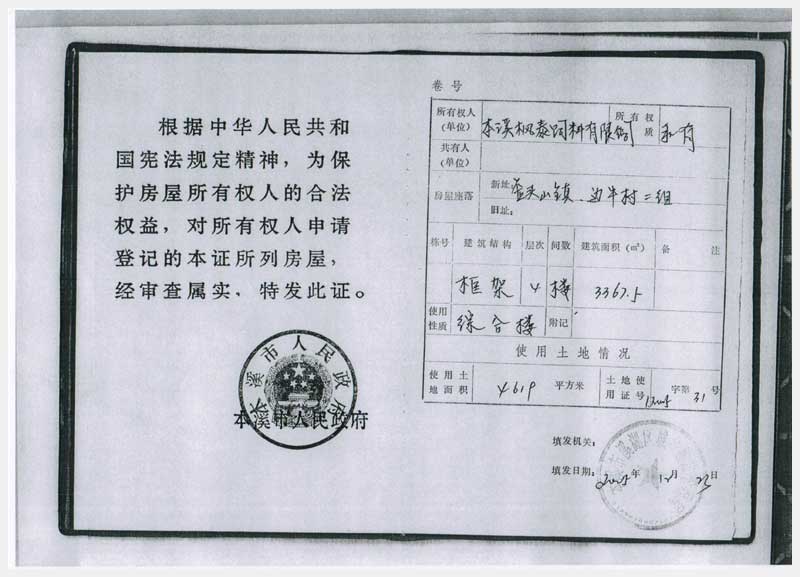 根据中华人民共和
国宪法规定精神，为保
护房屋所有权人的合法
权益，对所有权人申请
登记的本证所列房屋，
经审查属实，特发此证。
本溪市人民政府
本溪市人民政府
卷号
所有权人（单位） 本溪枫泰饲料有限公司 所有权 质 私有
共有人（单位）
房屋座落 新址： 山镇、边牛村二组
旧址：
栋号 建筑结构 层次 间数 建筑面积（m²） 备注
框架 4 楼 3367.5
使用性质 综合楼 附记
使用土地情况
使用土地面积 4619 平方米 土地使用证号 字第 31 号
填发机关：
填发日期：2005年12月 日